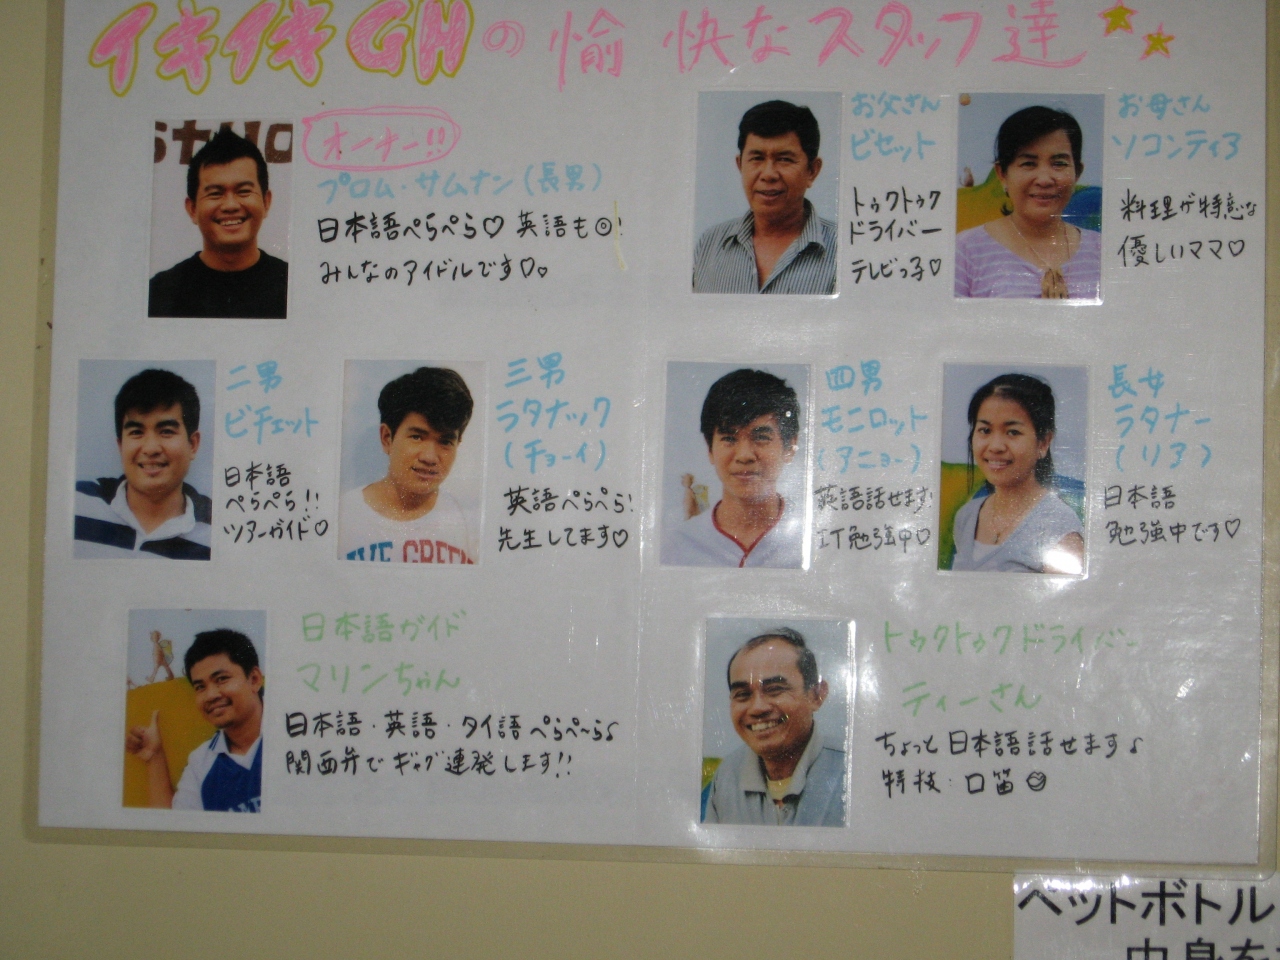 イキイキGHの愉快なスタッフ達
オーナー!!
プロム・サムナン(長男)
日本語ぺらぺら♡ 英語も◎!
みんなのアイドルです♡。
お父さん
ビセット
トゥクトゥク
ドライバー
テレビっ子♡
お母さん
ソコンティア
料理が得意な
優しいママ♡
二男
ビチェット
日本語
ぺらぺら!!
ツアーガイド♡
三男
ラタナック
(チョーイ)
英語ぺらぺら!
先生してます♡
四男
モニロット
(アニョー)
英語話せます
IT勉強中♡
長女
ラタナー
(リア)
日本語
勉強中です♡
日本語ガイド
マリンちゃん
日本語・英語・タイ語ぺらぺ〜ら♪
関西弁でギャグ連発します!!
トゥクトゥクドライバー
ティーさん
ちょっと日本語話せます♪
特技・口笛
STUD
LIVE GREEN
ペットボトル
中身を